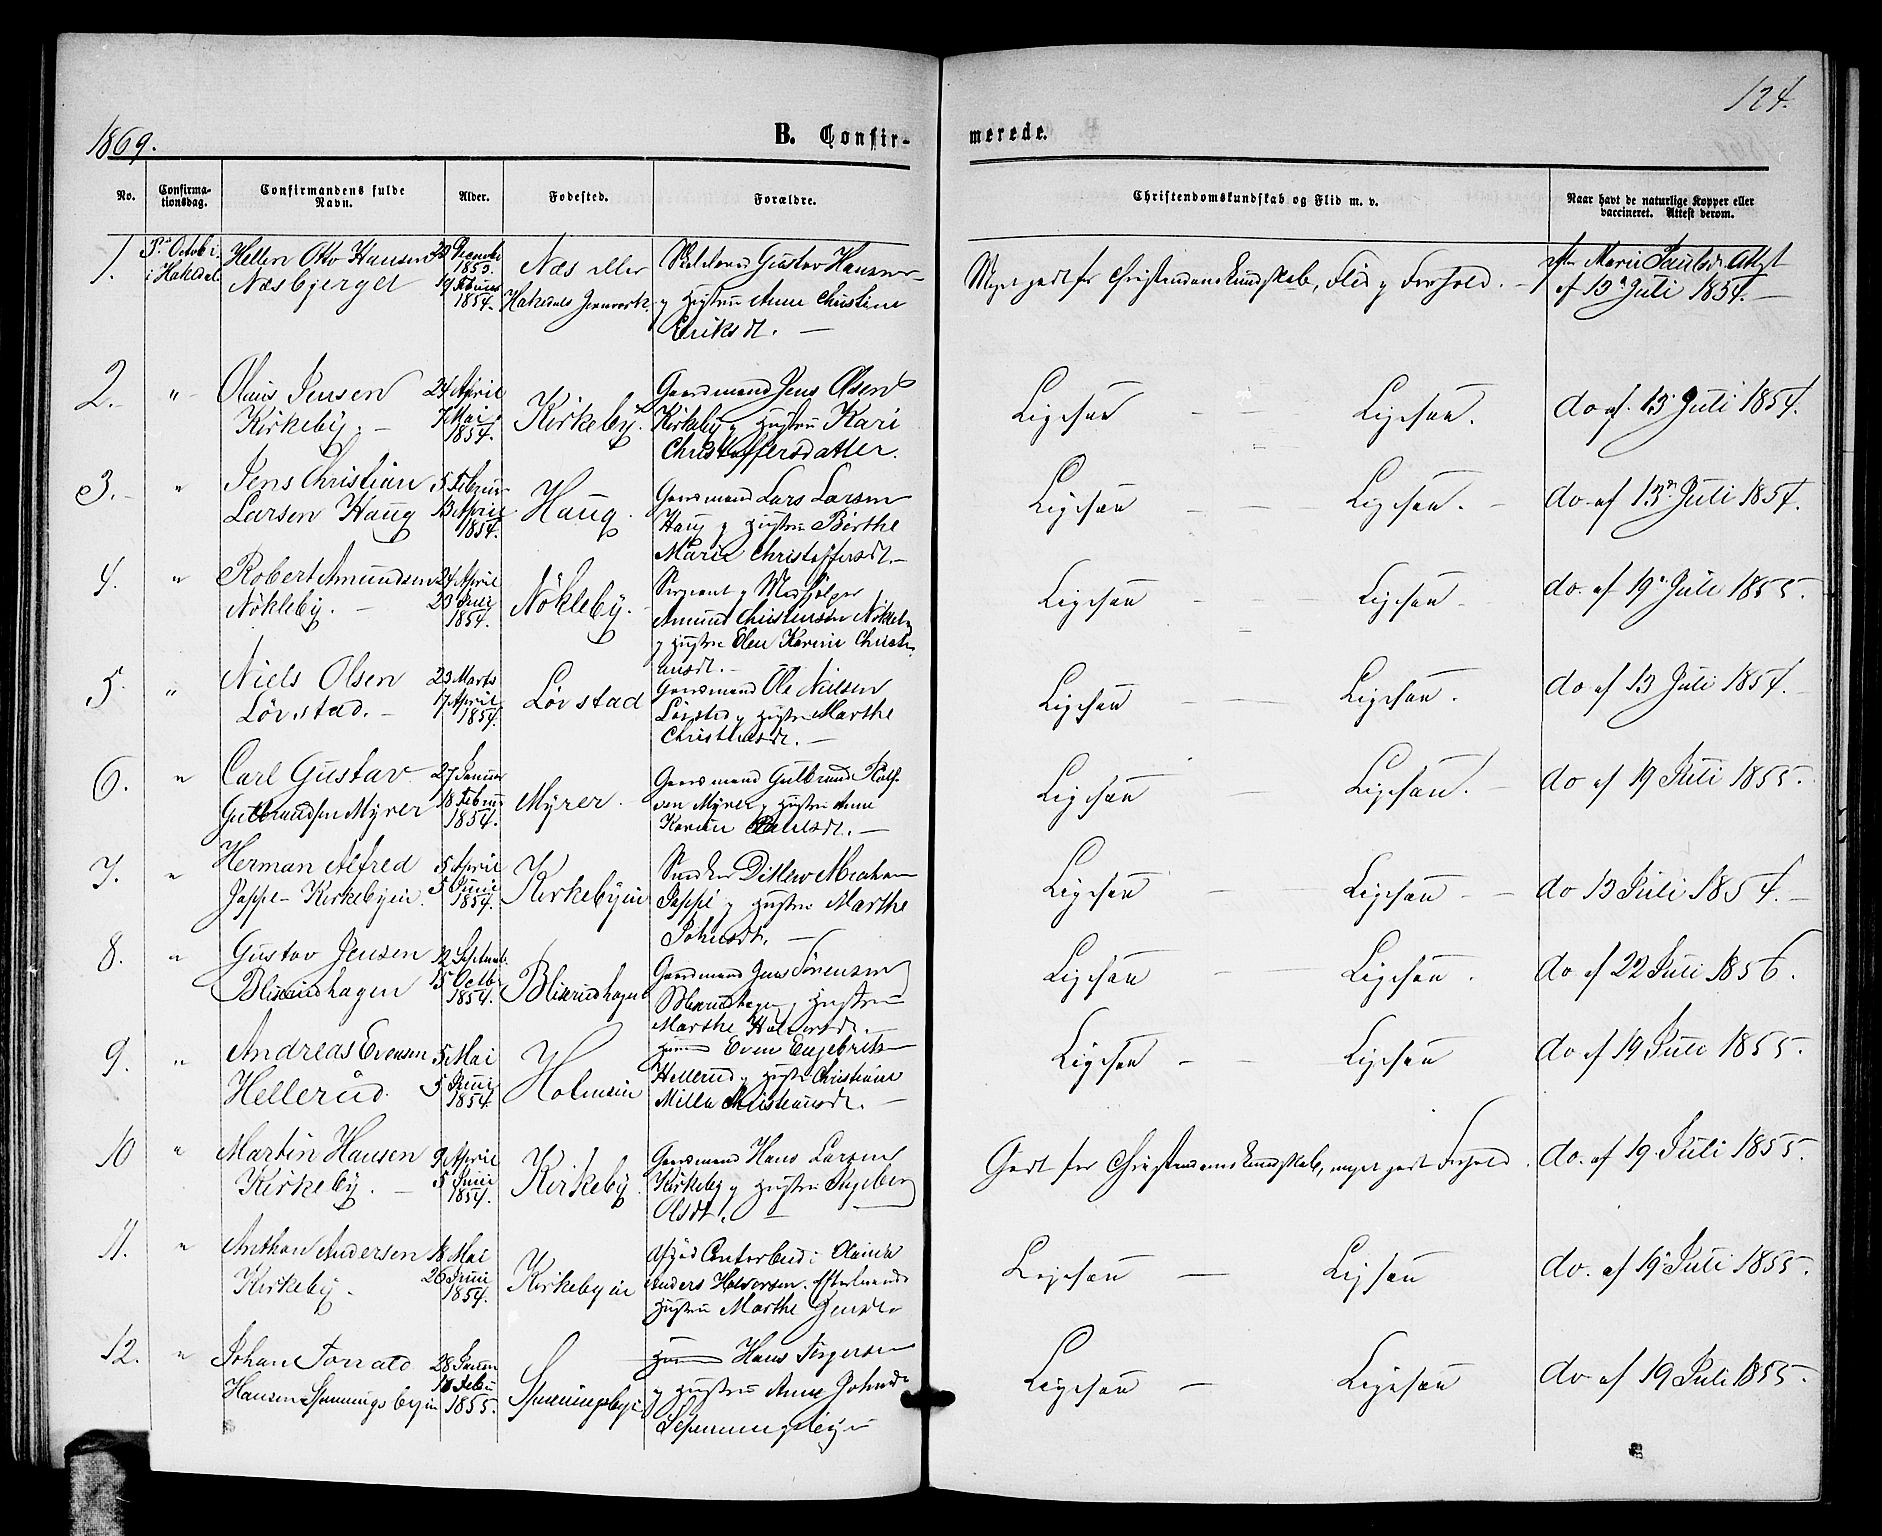 124.
1869.
B. Confir-
merede.
No.
Confirma-
tionsdag.
Confirmandens fulde
Navn.
Alder.
Fødested.
Forældre.
Christendomskundskab og Flid m. v.
Naar havt de naturlige Kopper eller
vaccineret. Attest derom.
1.
3die Octob i
i Hakedal
Hellen Otto Hansen
Næsbjerget
1853.
1854.
Næs eller
Hakedals Jernværk.
Gustav Hansen
og Hustru Anne Christine
Eriksdt. —
Meget godt for Christendomskundskab, Flid og Forhold. —
Marie Paulsdr Attest
af 13 Juli 1854. —
2. "
Olaus Jensen
Kirkeby. —
24 April
7 Mai
1854.
Kirkeby.
Gaardmand Jens Olsen
Kirkeby og Hustru Kari
Christoffersdatter.
Ligesaa — — Ligesaa.
do af 13 Juli 1854.
3. — "
Jens Christian
Larsen Haug
5 Februar
13 April
1854.
Haug.
Gaardmand Lars Larsen
Haug og Hustru Birthe
Marie Christoffersdt. —
Ligesaa — — Ligesaa. —
do af 13de Juli 1854.
4. "
Robert Amundsen
Nökleby. —
24 April
23 Juni
1854.
Nökleby. —
Sergeant og
Amund Christensen Nökleby
og Hustru Elen Karine Christi-
ansdt. —
Ligesaa — — Ligesaa —
do. af 19de Juli 1855.
5. "
Niels Olsen
Lövstad. —
23 Marts
17 April
1854.
Lövstad
Gaardmand Ole Nielsen
Lövstad og Hustru Marthe
Christensdt. —
Ligesaa — — Ligesaa.
do af 13 Juli 1854. —
6. "
Carl Gustav
Gulbrandsen Myrer
27 Januar
18 Februar
1854.
Myrer.
Gaardmand Gulbrand
Myrer og Hustru Anne
Karine Paulsdt. —
Ligesaa — Ligesaa. —
do af 19 Juli 1855.
7. "
Herman Alfred
Jappe — Kirkebyein.
5 April
5 Juni
1854.
Kirkebyein
Ditlew
Jappe og Hustru Marthe
Johnsdt. —
Ligesaa — Ligesaa — —
do 13 Juli 1854. —
8. "
Gustav Jensen
Blixrudhagen
12 Septemb.
15 Octbr
1854.
Blixrudhagen
Gaardmand Jens Sörensen
Blixrudhagen og Hustru
Marthe Halvorsdt. —
Ligesaa — Ligesaa.
do af 22 Juli 1856.
9. "
Andreas Evensen
Hellerud.
5 Mai
5 Juni
1854.
Holmein
Even Engebretsen
Hellerud og Hustru Christiane
Milla Christiansdt. —
Ligesaa — — Ligesaa
do af 19 Juli 1855.
10 "
Martin Hansen
Kirkeby. —
9 April
5 Juni
1854.
Kirkeby.
Gaardmand Hans Larsen
Kirkeby og Hustru Ingeborg
Olsdt. —
Godt for Christendomskundskab, meget godt Forhold.
do. af 19 Juli 1855.
11. "
Anthon Andersen
Kirkeby.
18 Mai
26 Juni
1854.
Kirkebyein
Anders Halvorsen. Efterlevende
Hustru Marthe Jensdr
Ligesaa — Ligesaa
do. af 19de Juli 1855.
12. "
Johan Torvald
Hansen Spenningsbyein
28 Januar
1855.
Spenningsbyei
Hans Jörgensen
og Hustru Anne Johnsdr
Spenningsbyein
Ligesaa — Ligesaa
do af 19 Juli 1855. —